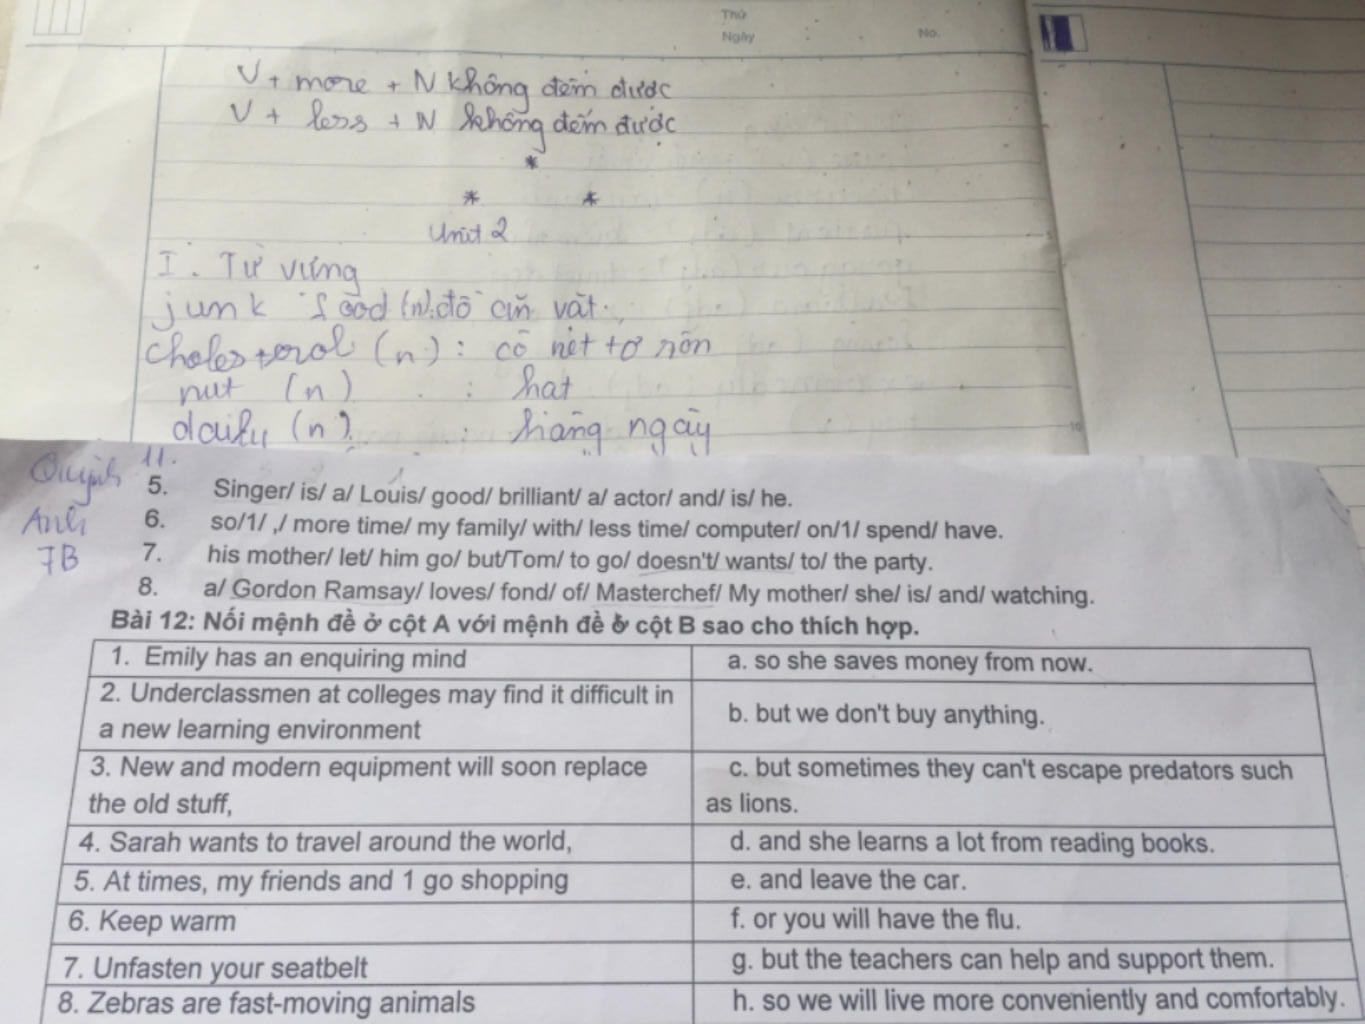 Thứ
Ngày
No.
V + more + N không đếm được
V + less + N không đếm được
*
* *
Unit 2
I. Từ vựng
junk food (n): đồ ăn vặt
cholesterol (n): cô nét tơ rôn
nut (n) : hạt
daily (n) : hàng ngày
Quỳnh Anh 7B
11.
5. Singer/ is/ a/ Louis/ good/ brilliant/ a/ actor/ and/ is/ he.
6. so/1/ ,/ more time/ my family/ with/ less time/ computer/ on/1/ spend/ have.
7. his mother/ let/ him go/ but/Tom/ to go/ doesn't/ wants/ to/ the party.
8. a/ Gordon Ramsay/ loves/ fond/ of/ Masterchef/ My mother/ she/ is/ and/ watching.
Bài 12: Nối mệnh đề ở cột A với mệnh đề ở cột B sao cho thích hợp.
1. Emily has an enquiring mind
a. so she saves money from now.
2. Underclassmen at colleges may find it difficult in
a new learning environment
b. but we don't buy anything.
3. New and modern equipment will soon replace
the old stuff,
c. but sometimes they can't escape predators such
as lions.
4. Sarah wants to travel around the world,
d. and she learns a lot from reading books.
5. At times, my friends and 1 go shopping
e. and leave the car.
6. Keep warm
f. or you will have the flu.
7. Unfasten your seatbelt
g. but the teachers can help and support them.
8. Zebras are fast-moving animals
h. so we will live more conveniently and comfortably.